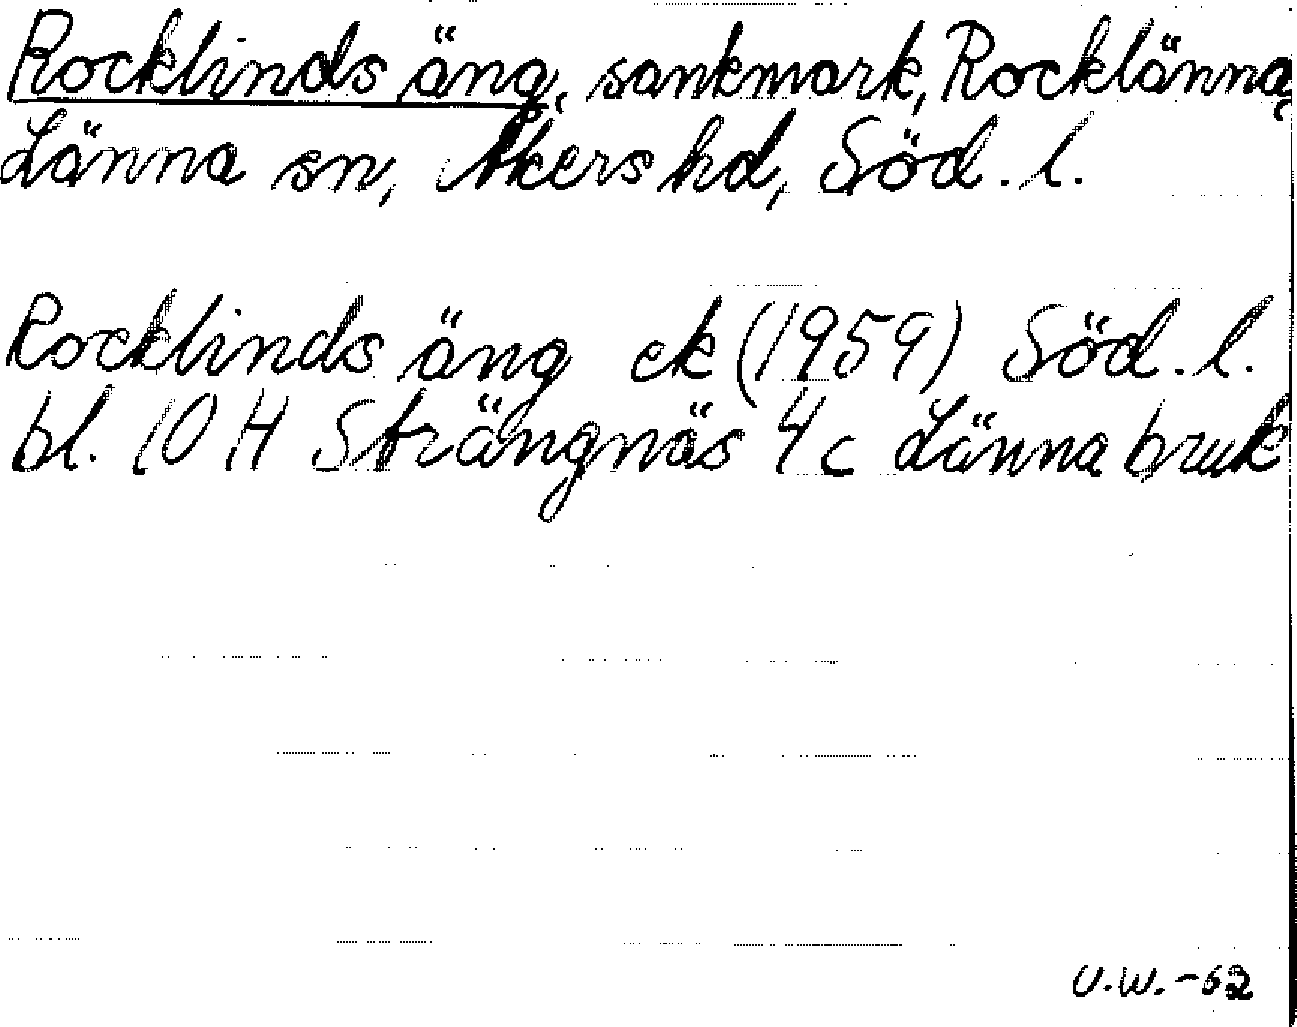 Rocklinds äng, sankmark, Rocklänna,
Länna sn, Åkers hd, Söd. l.
Rocklinds äng ek (1959) Söd. l.
bl. 10 H Strängnäs 4 c Länna bruk
U.W. -62